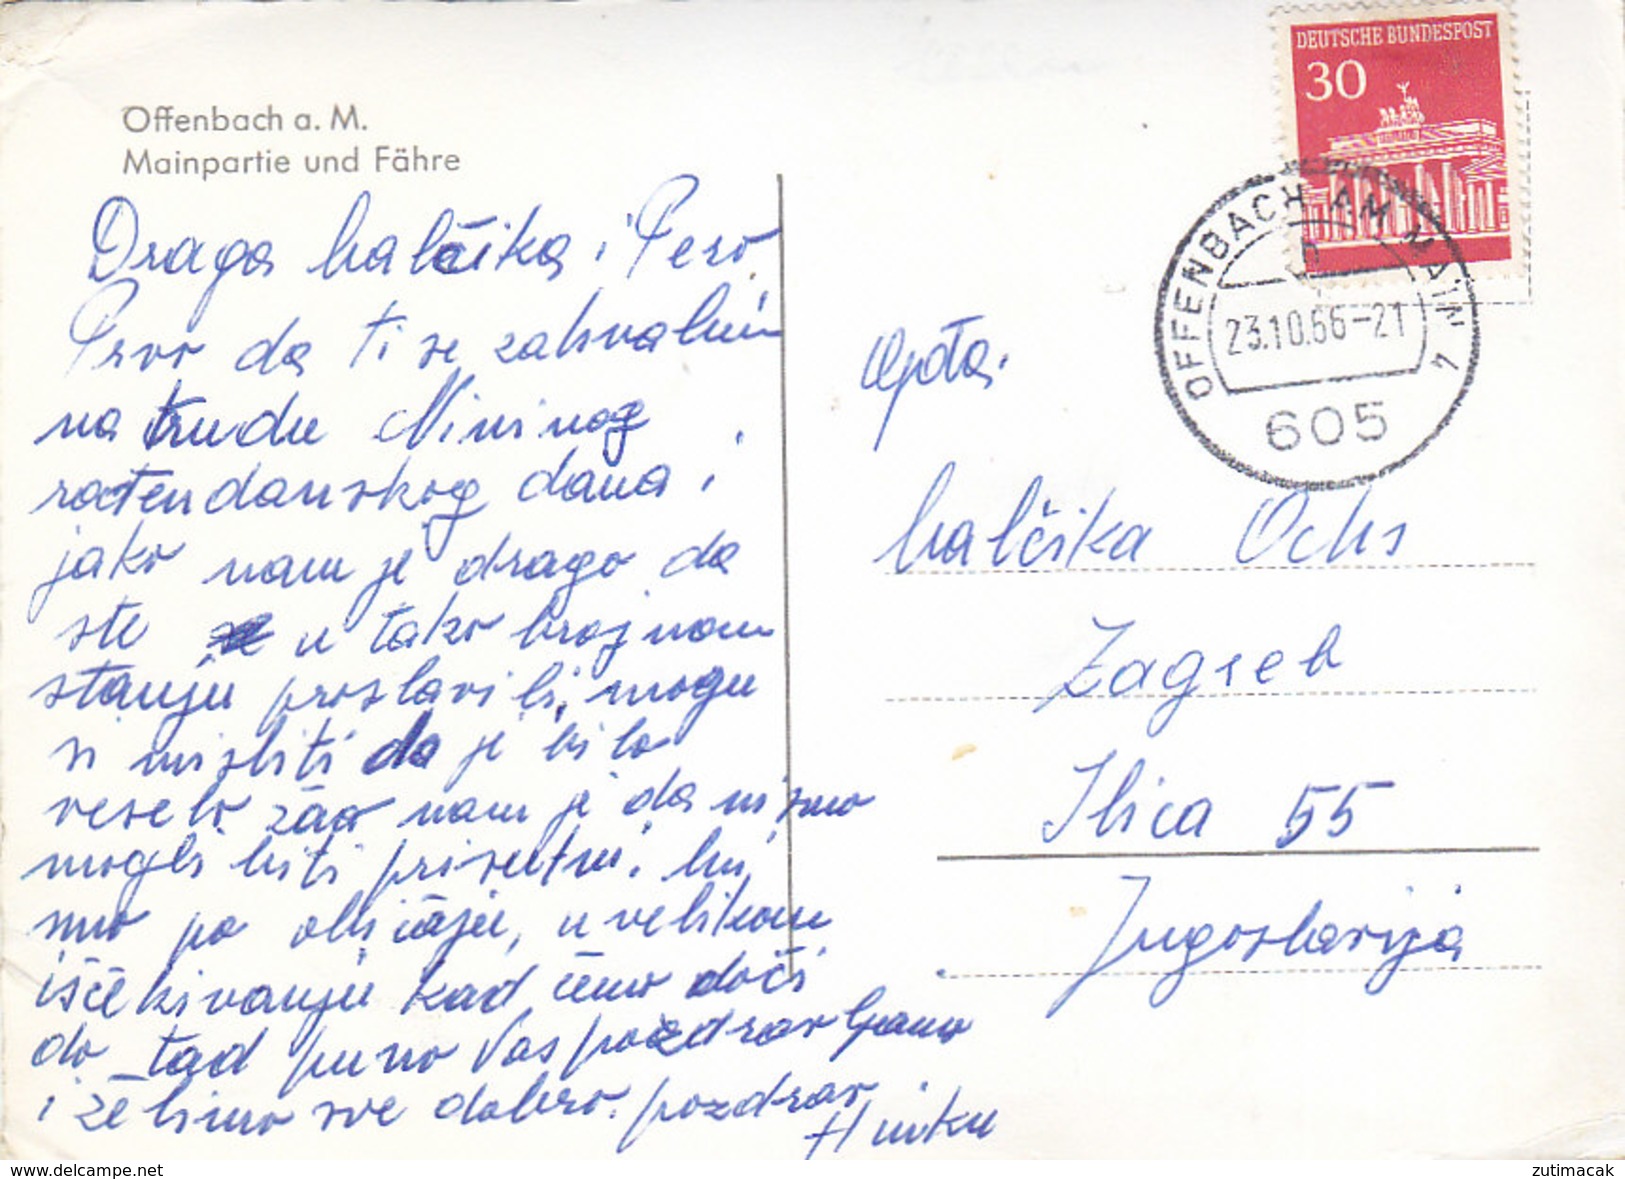 Offenbach a. M.
Mainpartie und Fähre
Draga halčika i Pero
Prvo da ti se zahvalim
na trudu Mininog
rođendanskog dana i
jako nam je drago da
ste u tako brojnom
stanju proslavili, mogu
si misliti da je bilo
veselo žao nam je da nismo
mogli biti prisutni. Mi
smo po običaju, u velikom
iščekivanju kad ćemo doći
do tad puno Vas pozdravljamo
i želimo sve dobro. pozdrav
DEUTSCHE BUNDESPOST
30
OFFENBACH AM MAIN 1
23.10.66-21
605
Gpđa.
halčika Ochs
Zagreb
Ilica 55
Jugoslavija
www.delcampe.net
zutimacak